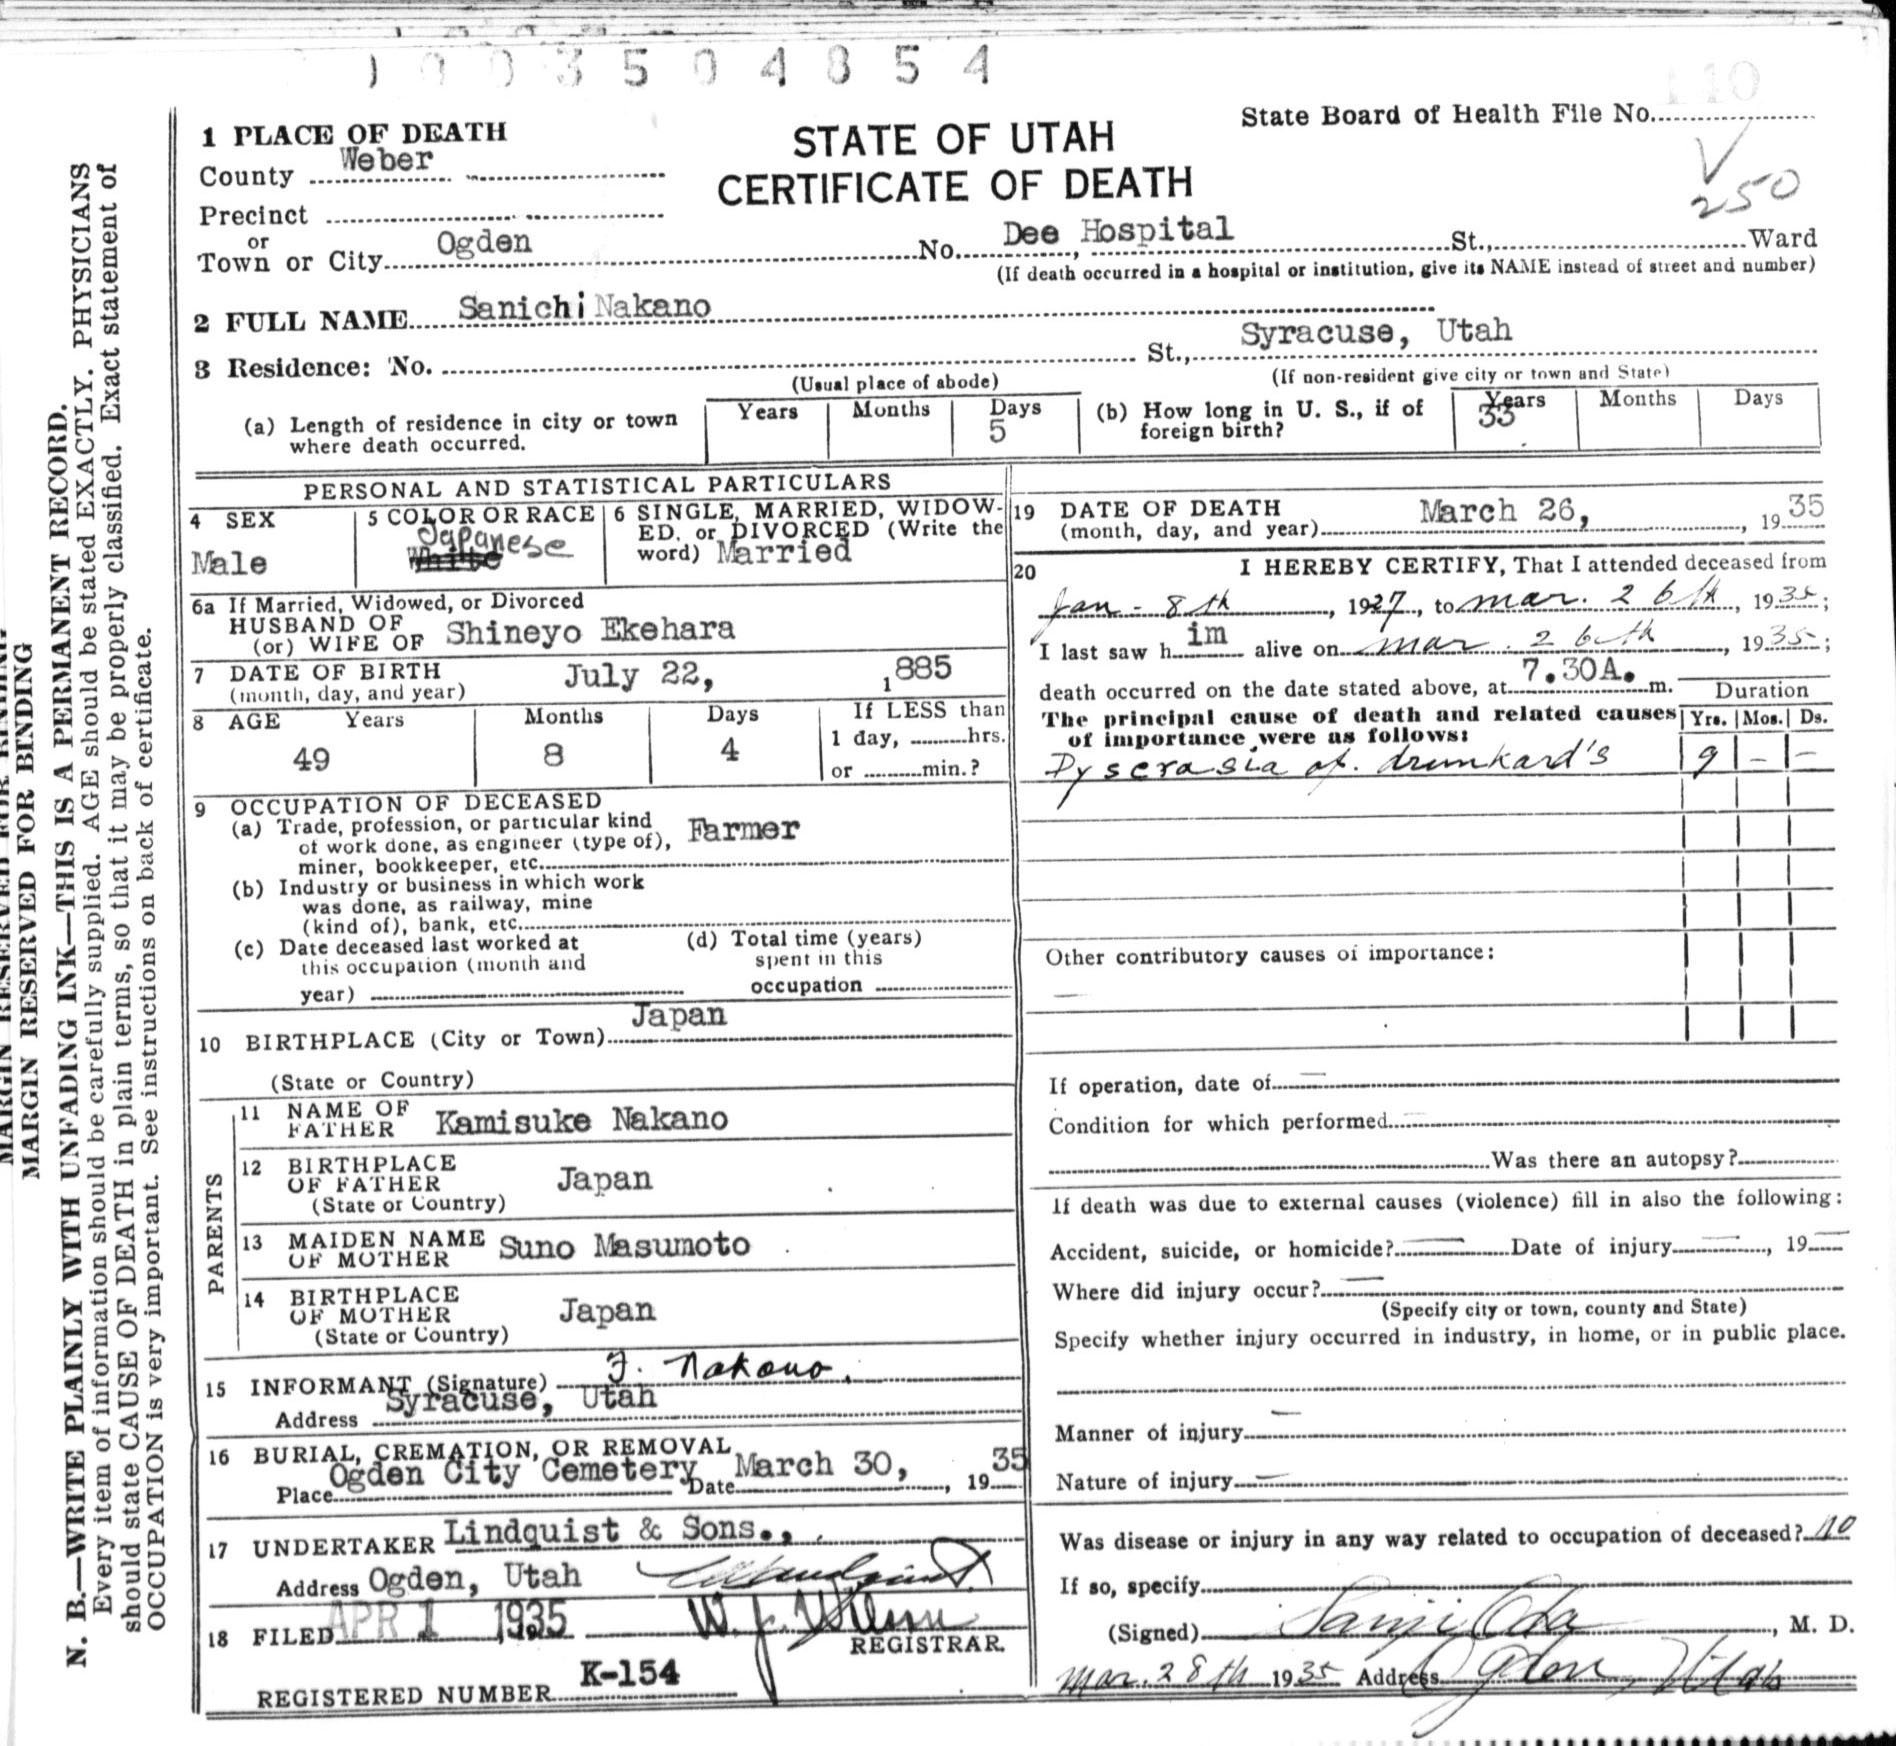 1003504854
110
State Board of Health File No.
V
250
STATE OF UTAH
CERTIFICATE OF DEATH
1 PLACE OF DEATH
County Weber
Precinct
or
Town or City Ogden No. Dee Hospital St., Ward
(If death occurred in a hospital or institution, give its NAME instead of street and number)
2 FULL NAME Sanichi Nakano
3 Residence: No. St., Syracuse, Utah
(Usual place of abode) (If non-resident give city or town and State)
(a) Length of residence in city or town where death occurred. Years Months Days 5
(b) How long in U. S., if of foreign birth? Years 33 Months Days
PERSONAL AND STATISTICAL PARTICULARS
4 SEX
Male
5 COLOR OR RACE
Japanese
White
6 SINGLE, MARRIED, WIDOW-
ED. or DIVORCED (Write the
word) Married
6a If Married, Widowed, or Divorced
HUSBAND OF
(or) WIFE OF Shineyo Ekehara
7 DATE OF BIRTH
(month, day, and year) July 22, 1885
8 AGE Years Months Days If LESS than
49 8 4 1 day, hrs.
or min.?
9 OCCUPATION OF DECEASED
(a) Trade, profession, or particular kind
of work done, as engineer (type of), Farmer
miner, bookkeeper, etc.
(b) Industry or business in which work
was done, as railway, mine
(kind of), bank, etc.
(c) Date deceased last worked at
this occupation (month and
year)
(d) Total time (years)
spent in this
occupation
10 BIRTHPLACE (City or Town) Japan
(State or Country)
PARENTS
11 NAME OF
FATHER Kamisuke Nakano
12 BIRTHPLACE
OF FATHER Japan
(State or Country)
13 MAIDEN NAME
OF MOTHER Suno Masumoto
14 BIRTHPLACE
OF MOTHER Japan
(State or Country)
15 INFORMANT (Signature) F. Nakano.
Address Syracuse, Utah
16 BURIAL, CREMATION, OR REMOVAL
Place Ogden City Cemetery Date March 30, 1935
17 UNDERTAKER Lindquist & Sons.,
Address Ogden, Utah
18 FILED APR 1 1935 W. J. REGISTRAR.
REGISTERED NUMBER K-154
19 DATE OF DEATH
(month, day, and year) March 26, 1935
20 I HEREBY CERTIFY, That I attended deceased from
Jan - 8th, 1927, to mar. 26th, 1935;
I last saw him alive on mar. 26th, 1935;
death occurred on the date stated above, at 7.30A. m.
Duration
The principal cause of death and related causes Yrs. Mos. Ds.
of importance were as follows:
Dyscrasia of. drunkard's 9 - -
Other contributory causes of importance:
—
If operation, date of —
Condition for which performed —
Was there an autopsy?
If death was due to external causes (violence) fill in also the following:
Accident, suicide, or homicide? — Date of injury —, 19—
Where did injury occur? —
(Specify city or town, county and State)
Specify whether injury occurred in industry, in home, or in public place.
Manner of injury —
Nature of injury —
Was disease or injury in any way related to occupation of deceased? no
If so, specify
(Signed) , M. D.
mar. 28th 1935 Address Ogden, Utah
MARGIN RESERVED FOR BINDING
MARGIN RESERVED FOR BINDING
N. B.—WRITE PLAINLY WITH UNFADING INK—THIS IS A PERMANENT RECORD.
Every item of information should be carefully supplied. AGE should be stated EXACTLY. PHYSICIANS
should state CAUSE OF DEATH in plain terms, so that it may be properly classified. Exact statement of
OCCUPATION is very important. See instructions on back of certificate.